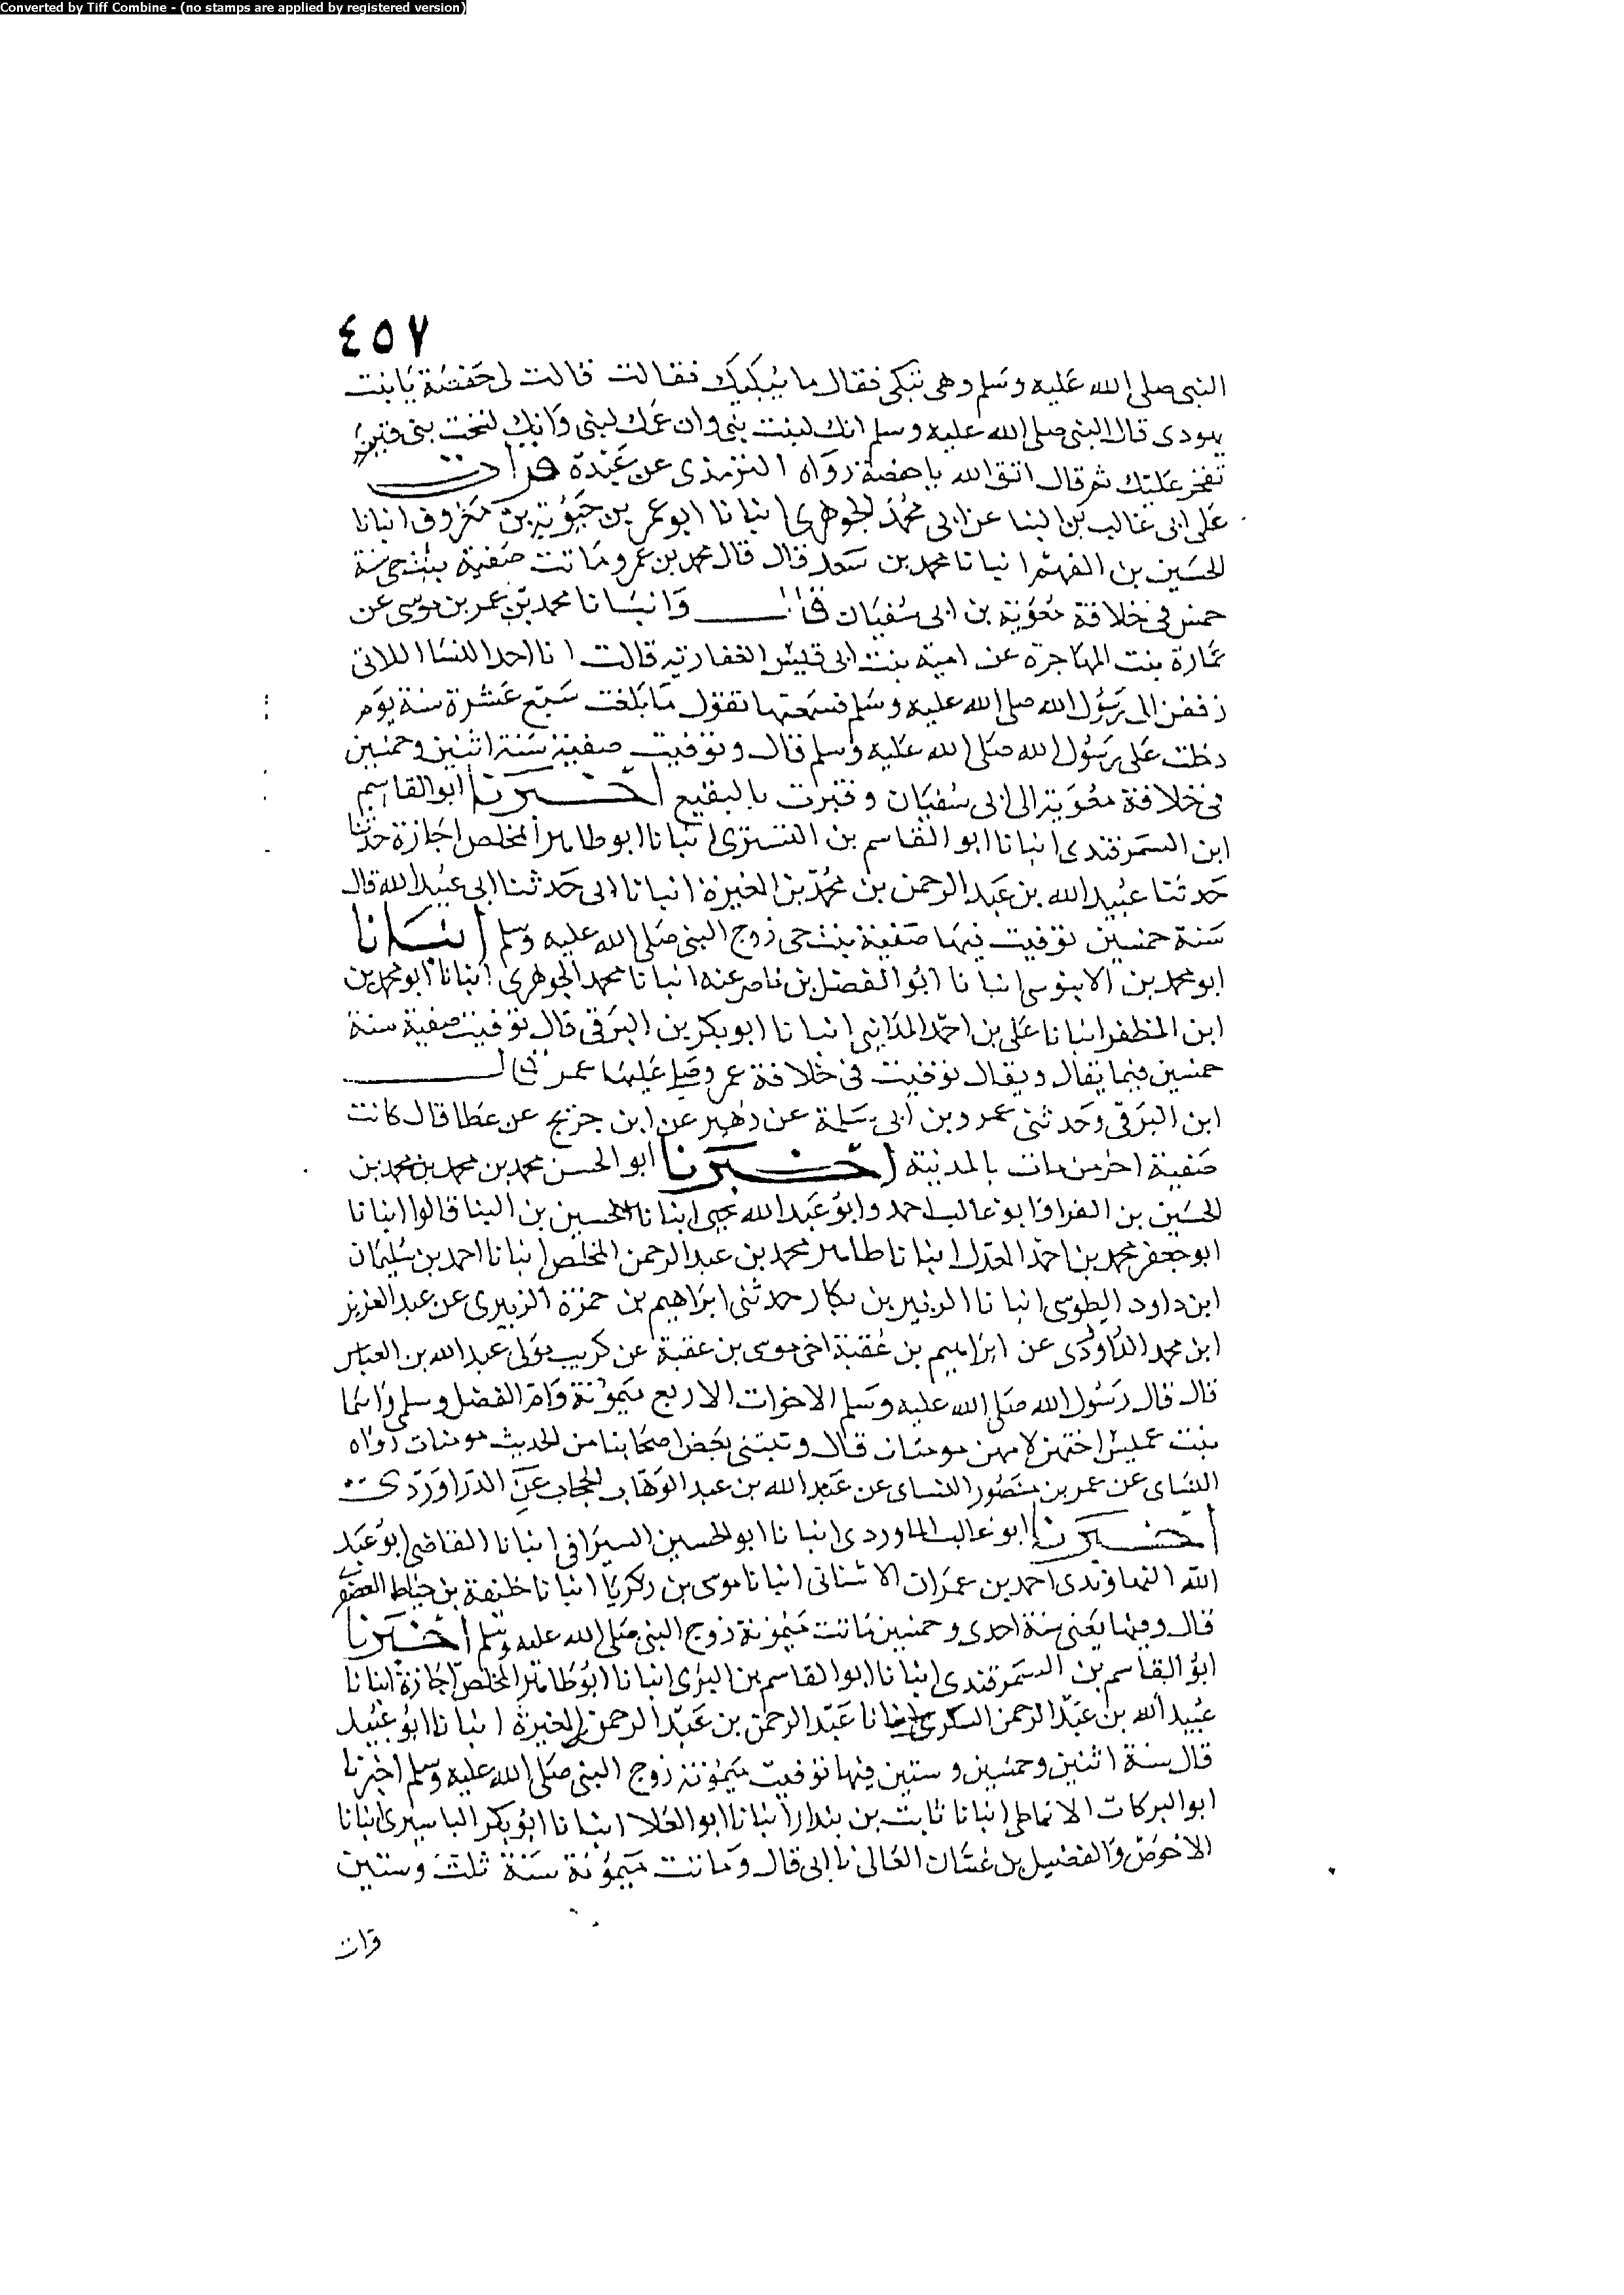 Converted by Tiff Combine - (no stamps are applied by registered version)
٤٥٧
النبى صلى الله عليه وسلم وهى تبكى فقال ما يبكيك فقالت قالت لى حفصة يا بنت
يهودى قال النبى صلى الله عليه وسلم انك لبنت نبى وان عمك لنبى وانك لتحت نبى فبم
تفخر عليك ثم قال اتق الله يا حفصة رواه الترمذى عن عبدة قرات
على ابى غالب بن البنا عن ابى محمد الجوهرى انبانا ابو عمر بن حيوية بن معروف انبانا
الحسين بن الفهم انبانا محمد بن سعد قال قال محمد بن عمر وماتت صفية بنت حى سنة
خمس فى خلافة معوية بن ابى سفيان قال وانبانا محمد بن عمر بن موسى عن
عمارة بنت المهاجرة عن امية بنت ابى قيس الغفارية قالت انا احد النسا اللاتى
زففن الى رسول الله صلى الله عليه وسلم فسمعتها تقول ما بلغت سبع عشرة سنة يوم
دخلت على رسول الله صلى الله عليه وسلم قال وتوفيت صفية سنة اثنين وخمسين
فى خلافة معوية الى ابى سفيان وقبرت بالبقيع اخبرنا ابو القاسم
ابن السمرقندى انبانا ابو القاسم بن التسترى انبانا ابو طاهر المخلص اجازة حدثنا
حدثنا عبيد الله بن عبد الرحمن بن محمد بن المغيرة انبانا ابى حدثنا ابى عبيد الله قال
سنة خمسين توفيت فيها صفية بنت حى زوج النبى صلى الله عليه وسلم انبانا
ابو محمد بن الابنوسى انبانا ابو الفضل بن ناصر عنه انبانا محمد الجوهرى انبانا ابو محمد بن
ابن المظفر انبانا على بن احمد المداينى انبانا ابو بكر بن البرقى قال توفيت صفية سنة
خمسين فيما يقال ويقال توفيت فى خلافة عمر وصلى عليها عمر قال
ابن البرقى وحدثنى عمرو بن ابى سلمة عن زهير عن ابن جريج عن عطا قال كانت
صفية اخر من مات بالمدينة اخبرنا ابو الحسن محمد بن محمد بن محمد بن
الحسين بن الفرا وابو غالب احمد وابو عبد الله يحيى ابنا الحسين بن البنا قالوا انبانا
ابو جعفر محمد بن احمد المعدل انبانا طاهر محمد بن عبد الرحمن المخلص انبانا احمد بن سليمان
ابن داود الطوسى انبانا الزبير بن بكار حدثنى ابراهيم بن حمزة الزبيرى عن عبد العزيز
ابن محمد الداودى عن ابراهيم بن عقبة اخى موسى بن عقبة عن كريب مولى عبد الله بن العباس
قال قال رسول الله صلى الله عليه وسلم الاخوات الاربع ميمونة وام الفضل وسلمى واسما
بنت عميس اختهن لامهن مومنات قال وثبتنى بعض اصحابنا من الحديث مومنات رواه
النساى عن عمر بن منصور النساى عن عبد الله بن عبد الوهاب الحجاب عن الدراوردى
اخبرنا ابو غالب الماوردى انبانا ابو الحسين السيرافى انبانا القاضى ابو عبد
الله النهاوندى احمد بن عمران الاشنانى انبانا موسى بن زكريا انبانا خليفة بن خياط العصفرى
قال وفيها يعنى سنة احدى وخمسين ماتت ميمونة زوج النبى صلى الله عليه وسلم اخبرنا
ابو القاسم بن السمرقندى انبانا ابو القاسم بن البرى انبانا ابو طاهر المخلص اجازة انبانا
عبيد الله بن عبد الرحمن السكرى انبانا عبد الرحمن بن عبد الرحمن المغيرة انبانا ابو عبيد
قال سنة اثنين وخمسين وستين فيها توفيت ميمونة زوج النبى صلى الله عليه وسلم اخبرنا
ابو البركات الانماطى انبانا ثابت بن بندار انبانا ابو العلا انبانا ابو بكر الباسيرى انبانا
الاحوص والفضيل بن غسان الغالى نا ابى قال وماتت ميمونة سنة ثلث وستين
قرات